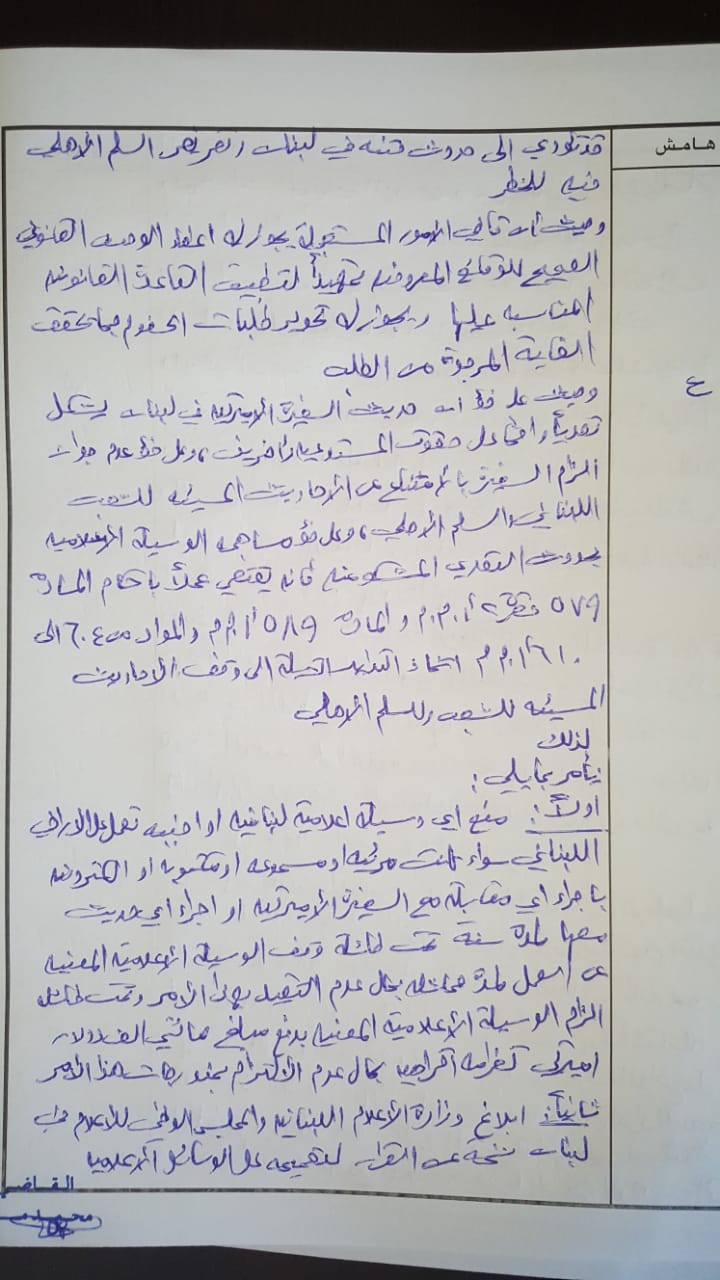 هامش
قد تؤدي الى حدوث فتنه في لبنان وتعريض السلم الاهلي
فيه للخطر
وحيث ان قاضي الامور المستعجلة يجوز له اعطاء الوصف القانوني
الصحيح للوقائع المعروضه تمهيداً لتطبيق القاعدة القانونيه
المناسبه عليها ويجوز له تحوير طلبات الخصوم بما يحقق
الغاية المرجوة من الطلب
ع
وحيث على ضوء ان حديث السفيرة الاميركيه في لبنان يشكل
تعدياً واضحا على حقوق المستدعيه ، وعلى ضوء عدم جواز
الزام السفيرة بالامتناع عن الاحاديث المسيئه للشعب
اللبناني والسلم الاهلي ، وعلى ضوء مساهمه الوسيلة الاعلاميه
بحدوث التعدي المشكو منه فانه يقتضي عملاً باحكام المادة
٥٧٩ فقرة ٢ أ.م.م والمادة ٥٨٩ أ.م.م والمواد من ٦٠٤ الى
٦١٠ أ.م.م اتخاذ التدابير الآيلة الى وقف الاحاديث
المسيئه للشعب وللسلم الاهلي
لذلك
نأمر بما يلي :
اولاً : منع اي وسيلة اعلامية لبنانيه او اجنبيه تعمل على الاراضي
اللبناني سواء كانت مرئيه او مسموعه او مكتوبه او الكترونيه
باجراء اي مقابلة مع السفيرة الاميركيه او اجراء اي حديث
معها لمدة سنة تحت طائلة وقف الوسيلة الاعلامية المعنيه
عن العمل لمدة مماثله بحال عدم التقيد بهذا الامر وتحت طائلة
الزام الوسيلة الاعلاميه المعنيه بدفع مبلغ مائتي الف دولار
اميركي كغرامه اكراهيه بحال عدم الالتزام بمندرجات هذا الامر
ثانياً : ابلاغ وزارة الاعلام اللبنانيه والمجلس الوطني للاعلام في
لبنان نسخة عن القرار لتعميمه على الوسائل الاعلاميه
القاضي
محمد